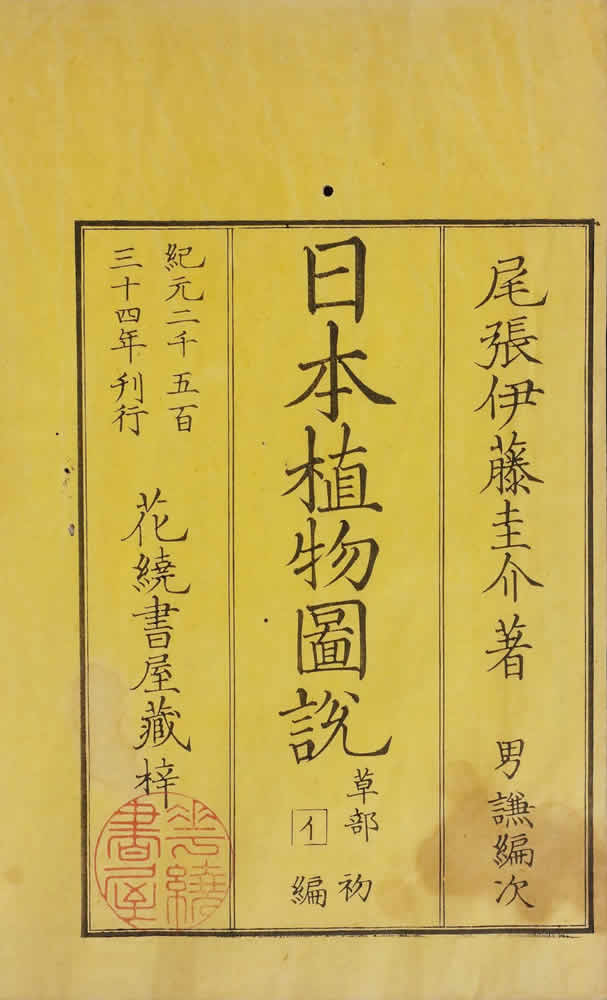 尾張伊藤圭介著　男謙編次
日本植物圖說
草部　初
イ　編
紀元二千五百
三十四年刊行
花繞書屋藏梓
花繞書屋